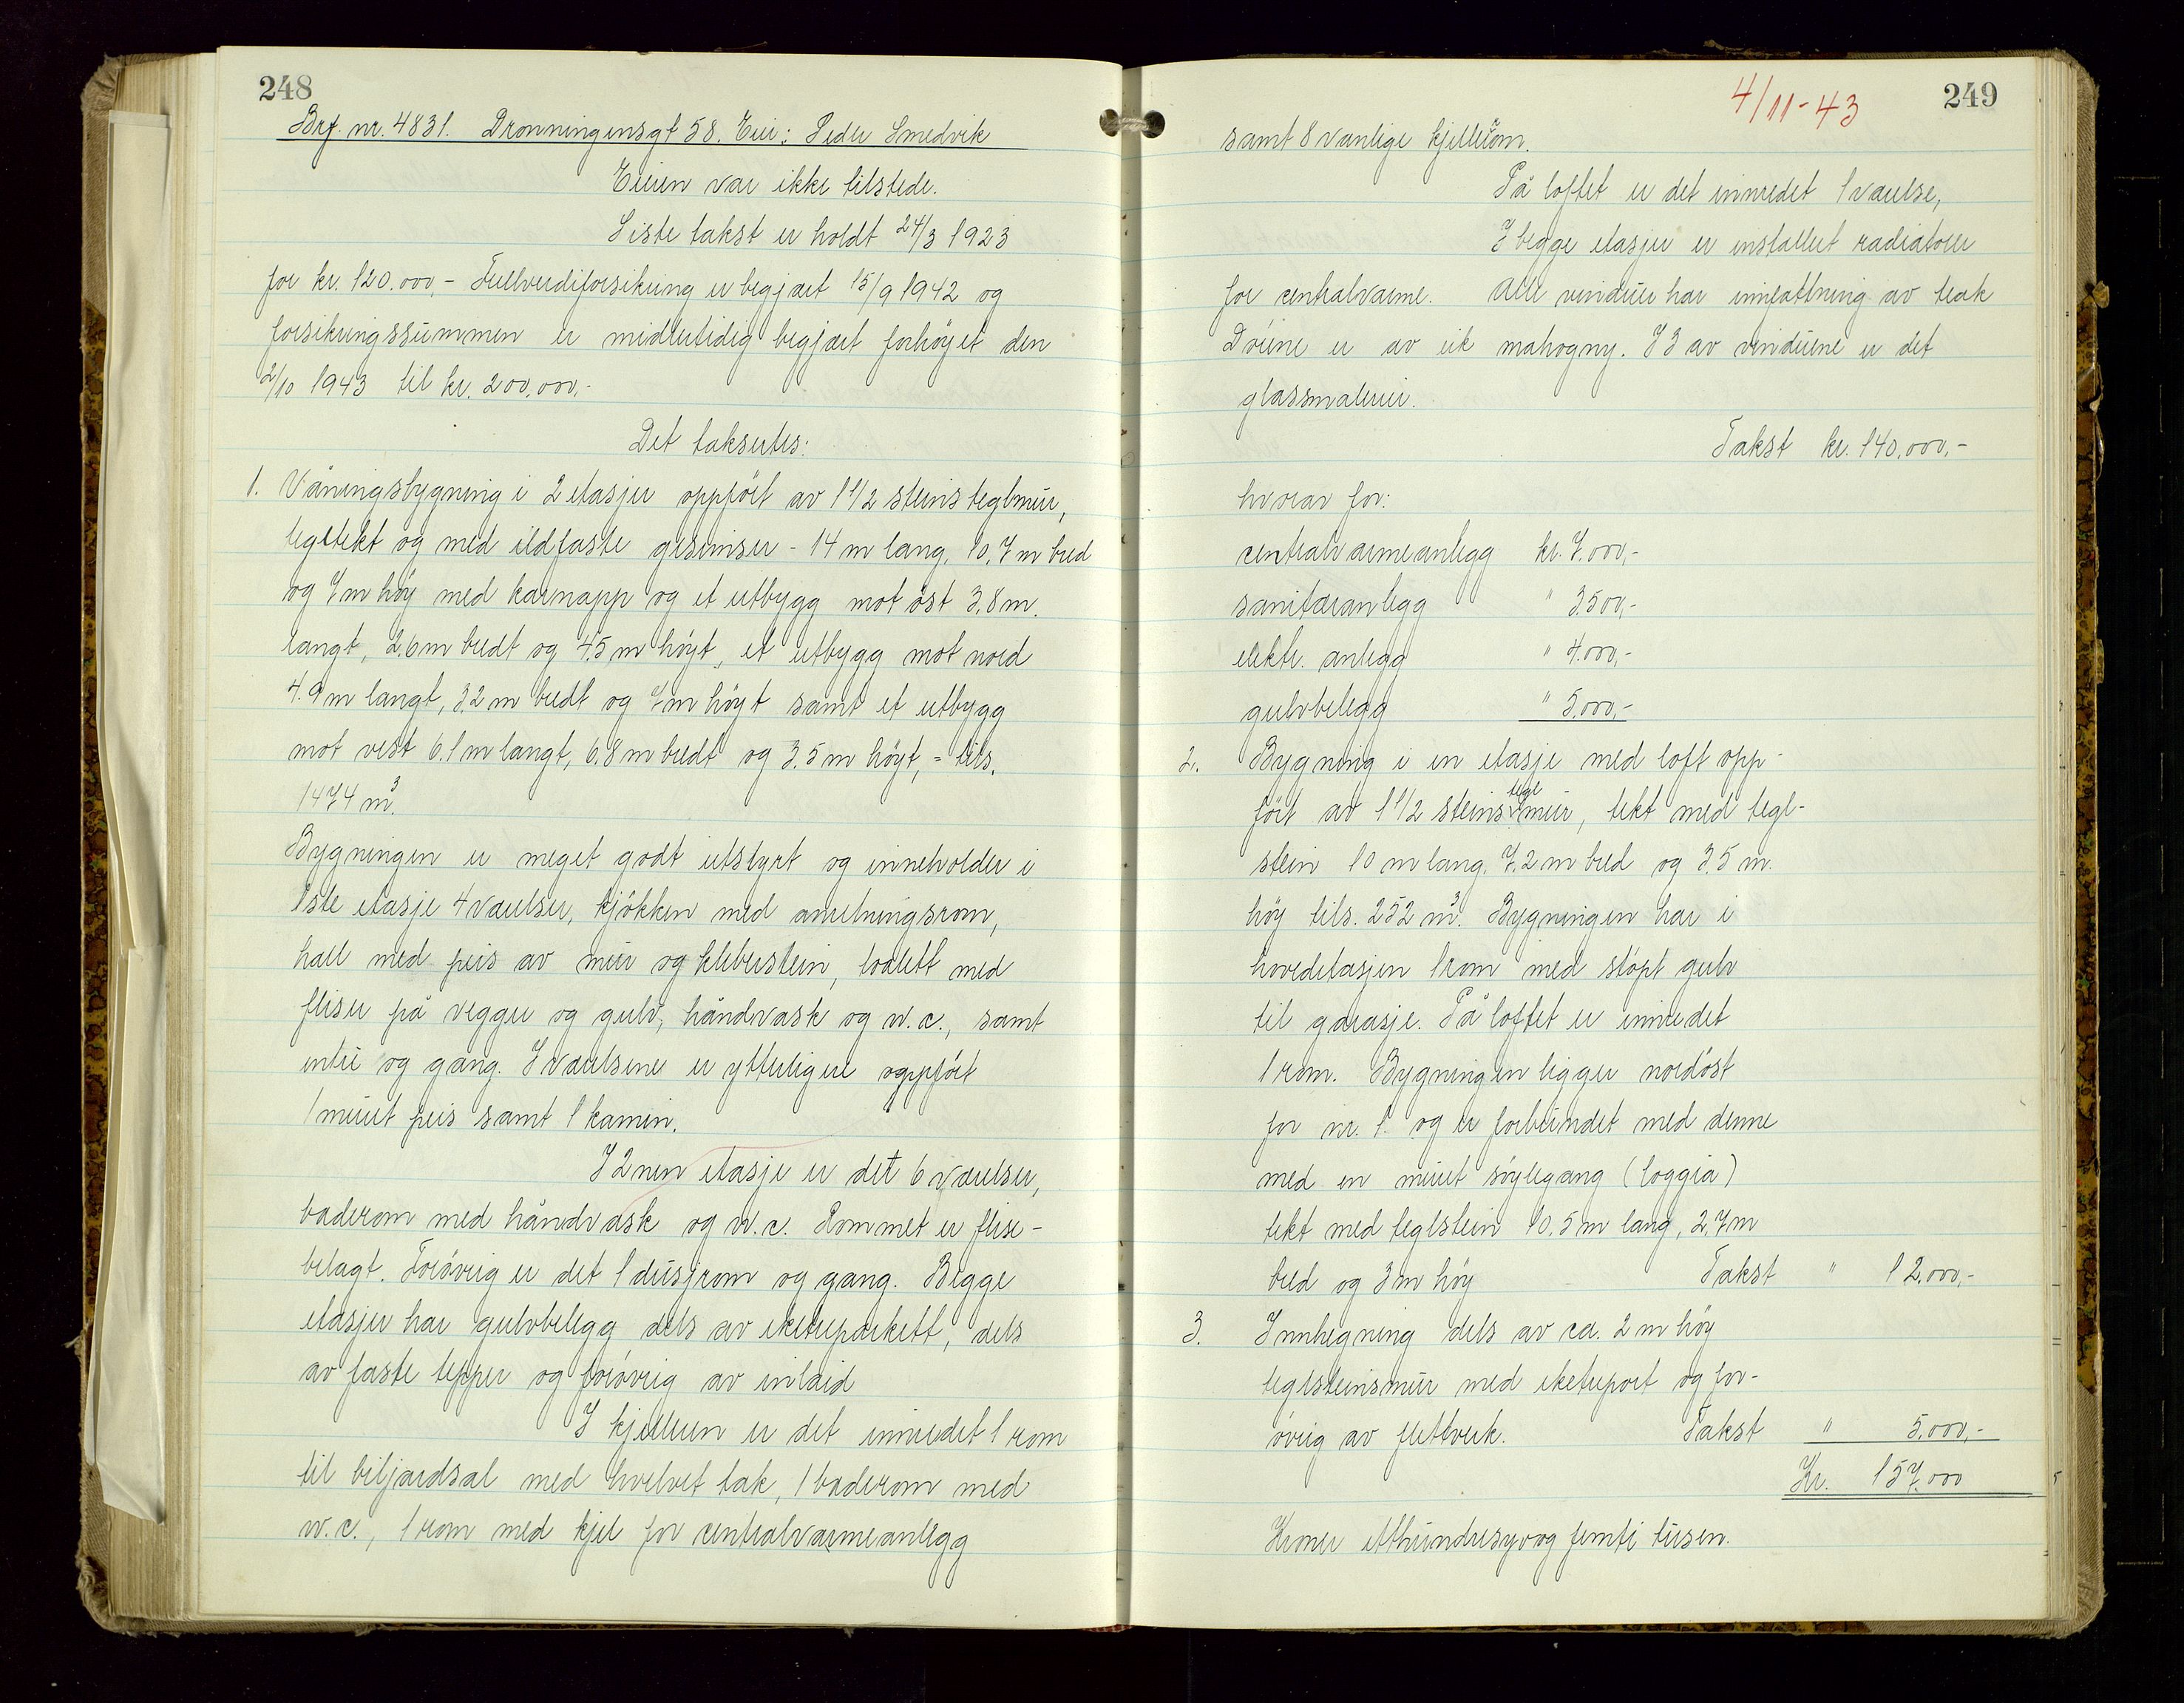 248
Brf. nr. 4831. Dronningensgt 58. Eier: Peder Smedvik
Eieren var ikke tilstede.
Siste takst er holdt 24/3 1923
for kr. 120.000,- Fullverdiforsikring er begjært 15/9 1942 og
forsikringssummen er midlertidig begjært forhöyet den
2/10 1943 til kr. 200.000,-
Det takseres:
1. Våningsbygning i 2 etasjer oppfört av 1 1/2 steins teglmur,
tegltekt og med ildfaste gesimser - 14 m lang, 10,7 m bred
og 7 m höy med karnapp og et utbygg mot öst 3,8 m.
langt, 2,6 m bredt og 4,5 m höyt, et utbygg mot nord
4.9 m langt, 3,2 m bredt og 7 m höyt samt et utbygg
mot vest 6.1 m langt, 6,8 m bredt og 3.5 m höyt, = tils.
1474 m³.
Bygningen er meget godt utstyrt og inneholder i
1ste etasje 4 værelser, kjökken med anretningsrom,
hall med peis av mur og kleberstein, toalett med
fliser på vegger og gulv, håndvask og w.c., samt
entré og gang. I værelsene er ytterligere oppfört
1 muret peis samt 1 kamin.
I 2nen etasje er det 6 værelser,
baderom med håndvask og w.c. Rommet er flise-
belagt. Forövrig er det 1 dusjrom og gang. Begge
etasjer har gulvbelegg dels av eketreparkett, dels
av faste tepper og forövrig av inlaid
I kjelleren er det innredet 1 rom
til biljardsal med hvelvet tak, 1 baderom med
w.c., 1 rom med kjel for centralvarmeanlegg
4/11-43
249
samt 8 vanlige kjellerrom.
På loftet er det innredet 1 værelse,
I begge etasjer er installert radiatorer
for centralvarme. Alle vinduer har innfattning av teak
Dörene er av eik mahogny. I 3 av vinduene er det
glassmalerier.
Takst kr. 140.000,-
hvorav for:
centralvarmeanlegg kr. 7.000,-
sanitæranlegg " 3.500,-
elektr. anlegg " 4.000,-
gulvbelegg " 5.000,-
2. Bygning i en etasje med loft opp-
fört av 1 1/2 steins tegl mur, tekt med tegl-
stein 10 m lang, 7,2 m bred og 3,5 m.
höy tils. 252 m³. Bygningen har i
hovedetasjen 1 rom med stöpt gulv
til garasje. På loftet er innredet
1 rom. Bygningen ligger nordöst
for nr. 1 og er forbundet med denne
med en muret söylegang (loggia)
tekt med teglstein 10.5 m lang, 2,7 m
bred og 3 m höy Takst " 12.000,-
3. Innhegning dels av ca. 2 m höy
teglsteinsmur med eketreport og for-
övrig av flettverk. Takst " 5.000,-
Kr. 157.000
Kroner etthundresyvogfemti tusen.